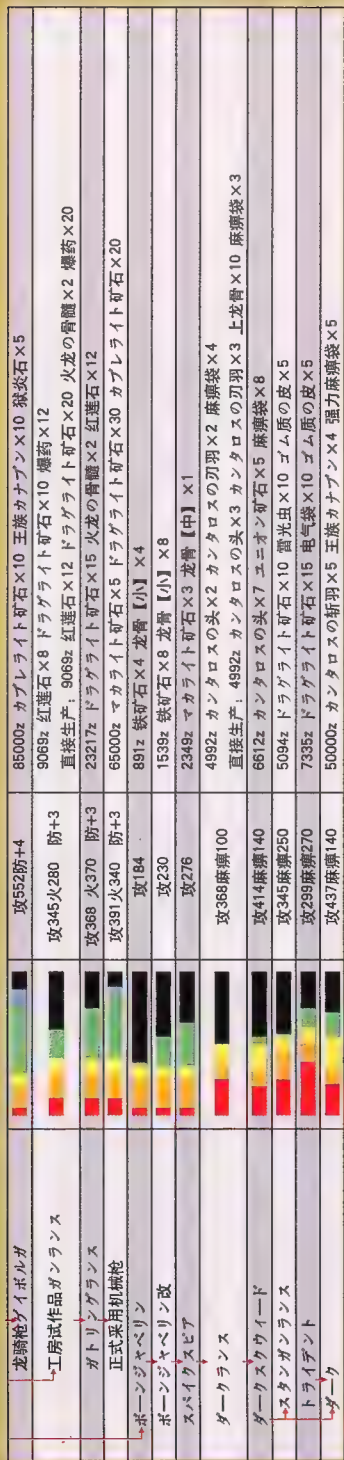 龙骑枪ゲイボルガ 攻552防+4 85000z カブレライト矿石×10 王族カナブン×10 狱炎石×5
工房试作品ガンランス 攻345火280 防+3 9069z 红莲石×8 ドラグライト矿石×10 爆药×12
直接生产：9069z 红莲石×12 ドラグライト矿石×20 火龙の骨髓×2 爆药×20
ガトリングランス 攻368 火370 防+3 23217z ドラグライト矿石×15 火龙の骨髓×2 红莲石×12
正式采用机械枪 攻391火340 防+3 65000z マカライト矿石×5 ドラグライト矿石×30 カブレライト矿石×20
ボーンジャベリン 攻184 891z 铁矿石×4 龙骨【小】×4
ボーンジャベリン改 攻230 1539z 铁矿石×8 龙骨【小】×8
スパイクスピア 攻276 2349z マカライト矿石×3 龙骨【中】×1
ダークランス 攻368麻痹100 4992z カンタロスの头×2 カンタロスの刃羽×2 麻痹袋×4
直接生产：4992z カンタロスの头×3 カンタロスの刃羽×3 上龙骨×10 麻痹袋×3
ダークスクウィード 攻414麻痹140 6612z カンタロスの头×7 ユニオン矿石×5 麻痹袋×8
スタンガンランス 攻345麻痹250 5094z ドラグライト矿石×10 雷光虫×10 ゴム质の皮×5
トライデント 攻299麻痹270 7335z ドラグライト矿石×15 电气袋×10 ゴム质の皮×5
ダーク 攻437麻痹140 50000z カンタロスの斩羽×5 王族カナブン×4 强力麻痹袋×5